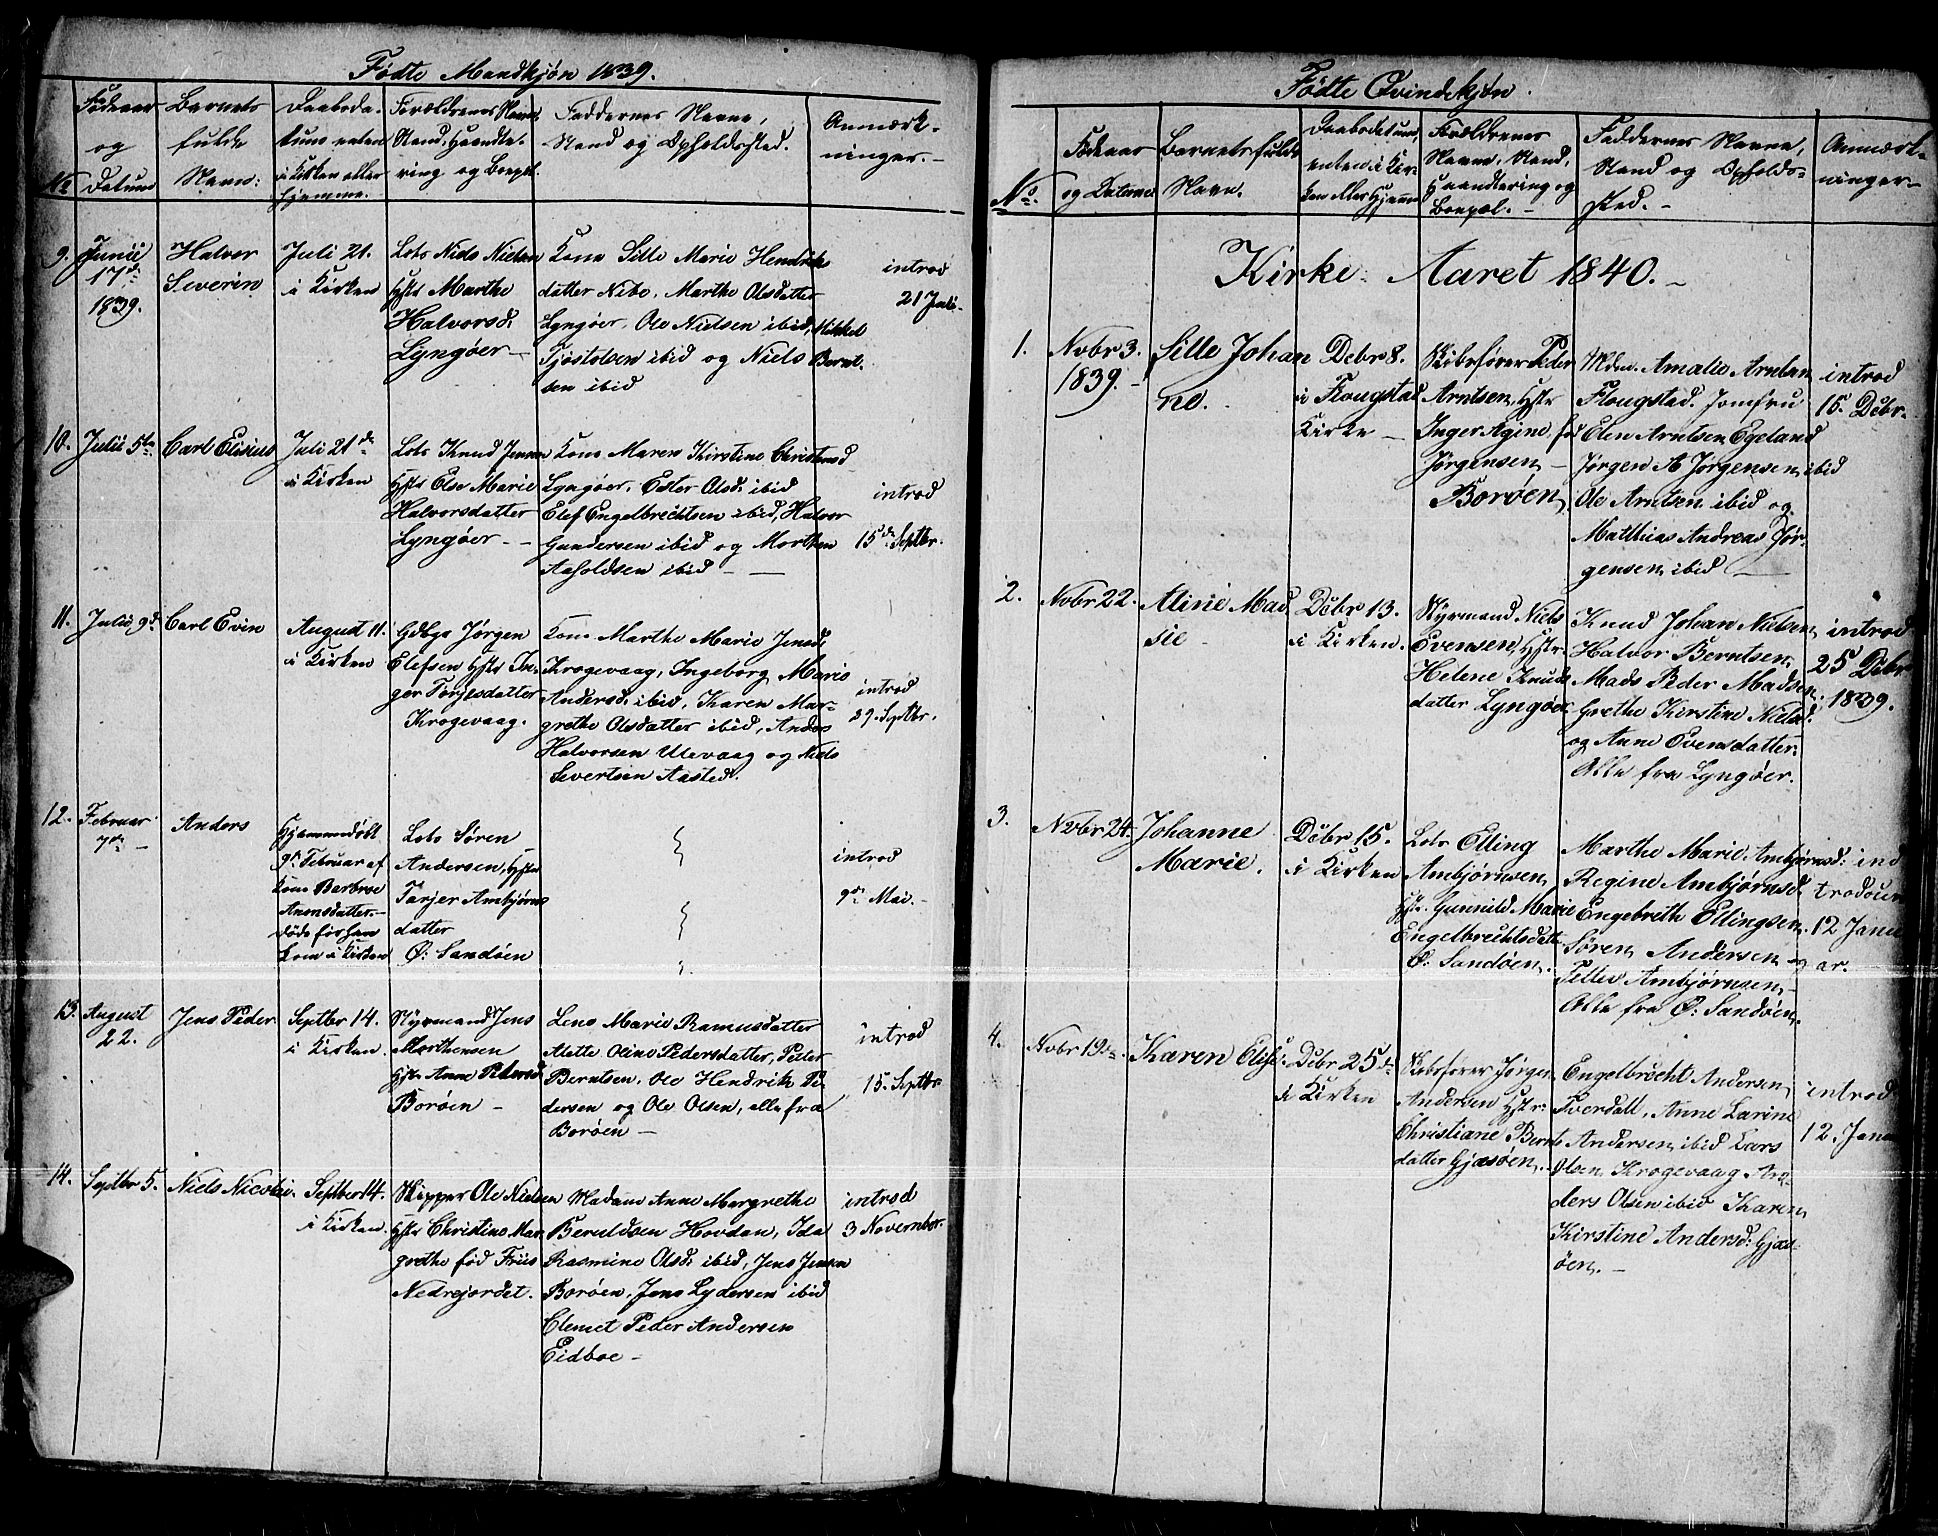 Fødte Mandkjøn 1839.
No
Fødeaar
og
Datum
Barnets
fulde
Navn:
Daabsda-
tum enten
i Kirken eller
hjemme.
Forældrenes Navn,
Stand, Haandte-
ring og Bopæl.
Faddernes Navne,
Stand og Opholdssted.
Anmærk-
ninger.-
9.
Junii
17de
1839.
Halvor
Severin
Juli 21.
i Kirken
Lots Niels Nielsen
Hstr Marthe
Halvorsd.
Lyngøer -
Kone Sille Marie Hendriks
datter Nibo, Marthe Olsdatter
Lyngøer, Ole Nielsen ibid, Mikkel
Tjøstolsen ibid og Niels Bernt-
sen ibid
introd
21 Juli.
10.
Julii 5te
Carl Elisius
Juli 21de
i Kirken
Lots Knud Jensen
Hstr Else Marie
Halvorsdatter
Lyngøer -
Kone Maren Kirstine Christensd
Lyngøer, Ester Olsd. ibid
Elef Engelbrechtsen ibid, Halvor
Gundersen ibid og Morthen
Aasoldsen ibid -
introd
15de Septbr.
11.
Julii 9de
Carl Evin
August 11.
i Kirken
Gdbgs Jørgen
Elefsen Hstr In-
ger Torjesdatter
Krogevaag.
Kone Marthe Marie Jensd.
Krogevaag, Ingeborg Marie
Andersd. ibid, Karen Mar-
grethe Olsdatter ibid, Anders
Halvorsen Ulevaag og Niels
Severtsen Aasted.
introd
29. Septbr.
12.
Februar
7de -
Anders
Hjemmedøbt
9de Februar af
Kone Barbroe
Aanonsdatter.-
døde før han
kom i Kirken
Lots Søren
Andersen, Hstr
Tarjer Ambjørns
datter
Ø: Sandøen
introd
9de Mai.-
13.
August
22.
Jens Peder
Septbr 14.
i Kirken.
Styrmand Jens
Morthensen
Hstr Anne Pedersd.
Borøen -
Lene Marie Ramusdatter
Alette Oline Pedersdatter, Peder
Berntsen, Ole Hendrik Pe-
dersen og Ole Olsen, alle fra
Borøen -
introd
15. Septbr
14.
Septbr 5.
Niels Nicolai
Septber 14.
i Kirken.
Skipper Ole Nielsen
Hstr Christine Mar-
grethe fød Friis
Nedrejordet.
Madame Anne Margrethe
Beruldsen Hovdan, Ida
Rasmine Olsd. ibid, Jens Jensen
Borøen, Jens Lydersen ibid
Clemet Peder Andersen
Eidboe -
introd
3 November.
Fødte Qvindekjøn.
No.
Fødeaar
og Datum
Barnets fulde
Navn.
Daabsdatum,
enten i Kir-
ken eller Hjemme
Forældrenes
Navne, Stand,
Haandtering og
Bopæl.-
Faddernes Navne,
Stand og Opholds-
sted.-
Anmærk-
ninger-
Kirke-Aaret 1840.-
1.
Novbr 3.
1839.-
Sille Johan
ne.
Debr 8.
i Flougstad
Kirke -
Skibsfører Peder
Arntsen, Hstr
Inger Agine, fød
Jørgensen -
Borøen,
Mdm. Amalie Arntsen
Flougstad. Jomfru
Elen Arntsen Egeland
Jørgen A Jørgensen ibid
Ole Arntsen ibid og
Matthias Andreas Jør-
gensen, ibid -
introd
15. Debr.
2.
Novbr 22.
Aline Mad
sie -
Debr 13.
i Kirken.
Styrmand Niels
Evensen, Hstr.
Helene Knuds
datter Lyngøer
Knud Johan Nielsen,
Halvor Berntsen,
Mads Peder Madsen
Grethe Kirstine Nielsd.
og Anne Evensdatter.
Alle fra Lyngøer.
introd
25 Debr
1839.
3.
Novbr 24.
Johanne
Marie.
Debr 15.
i Kirken
Lots Elling
Ambjørnsen,
Hstr. Gunnild Marie
Engelbrechtsdatt
Ø: Sandøen.
Marthe Marie Ambjørnsd:
Regine Ambjørnsd.
Engebreth Ellingsen.
Søren Andersen og
Tellev Ambjørnsen,-
Alle fra Ø: Sandøen,
ind
troduc
12 Janu
ar.
4.
Novbr 19de.
Karen Elise
Debr 25de
i Kirken
Skibsfører Jørgen
Andersen Hstr:
Christiane Bernts
datter Gjæsøen.
Engelbrecht Andersen,
Tverdall, Anne Larine
Andersen, ibid Lars
Olsen Krogevaag An-
ders Olsen ibid Karen,
Kirstine Andersd: Gjæs-
øen.-
introd
12. Janu